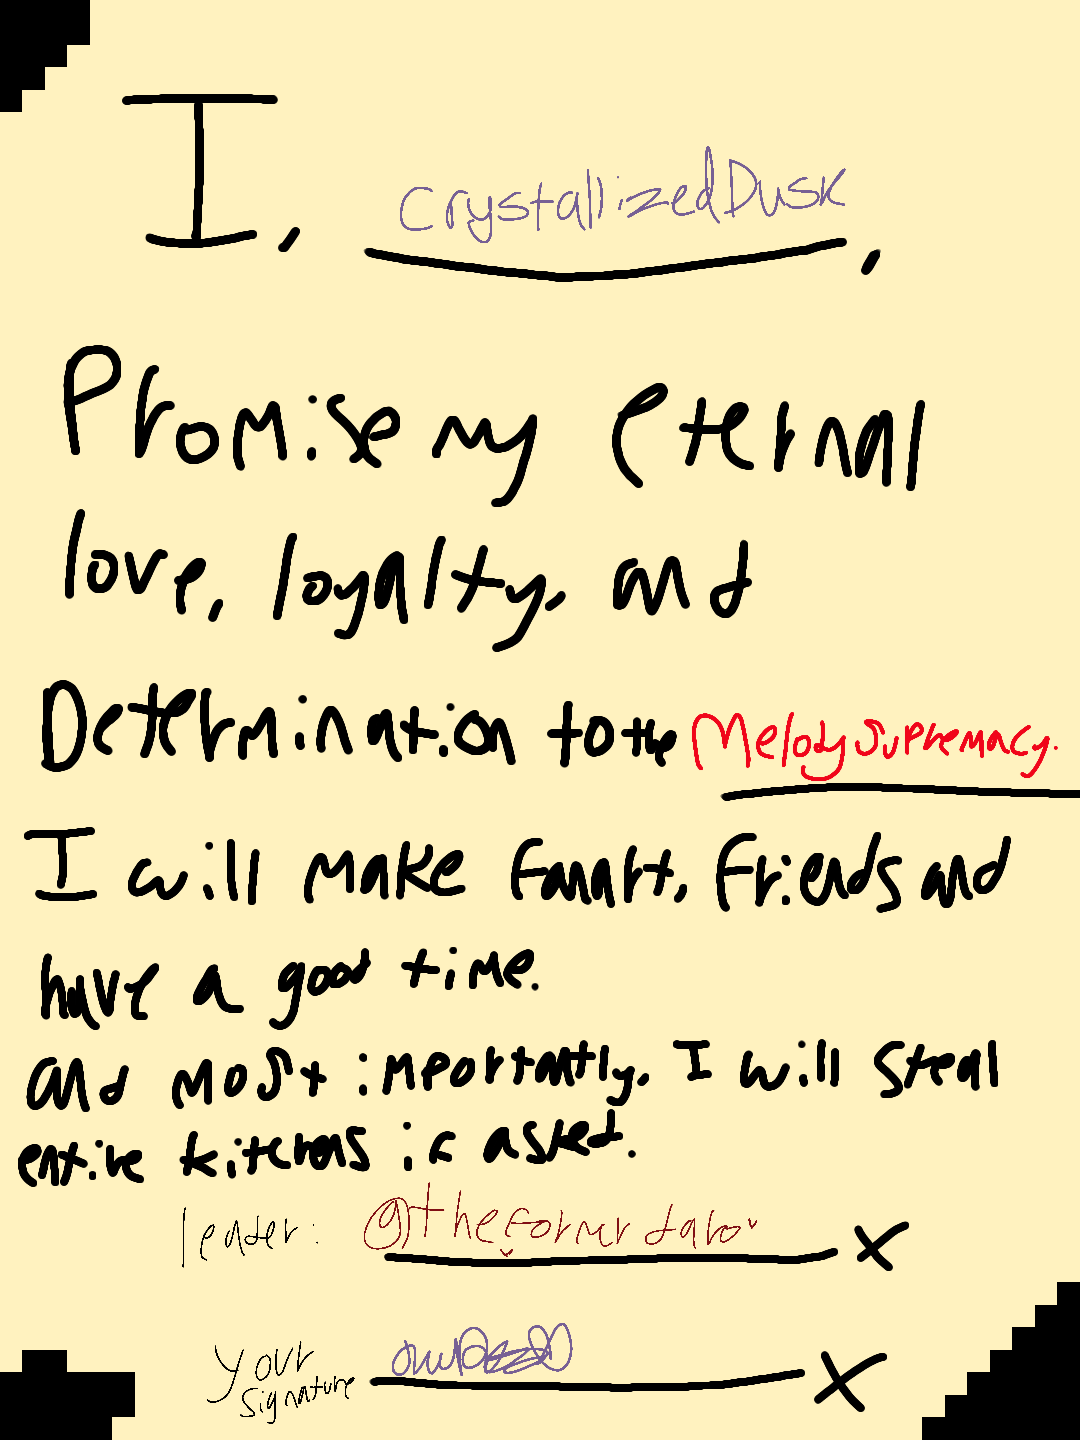 I, CrystallizedDusk,
Promise my eternal
love, loyalty, and
Determination to the Melody Supremacy.
I will make fanart, friends and
have a good time.
and most importantly, I will steal
entire kitchens if asked.
leader: X
Your
Signature X